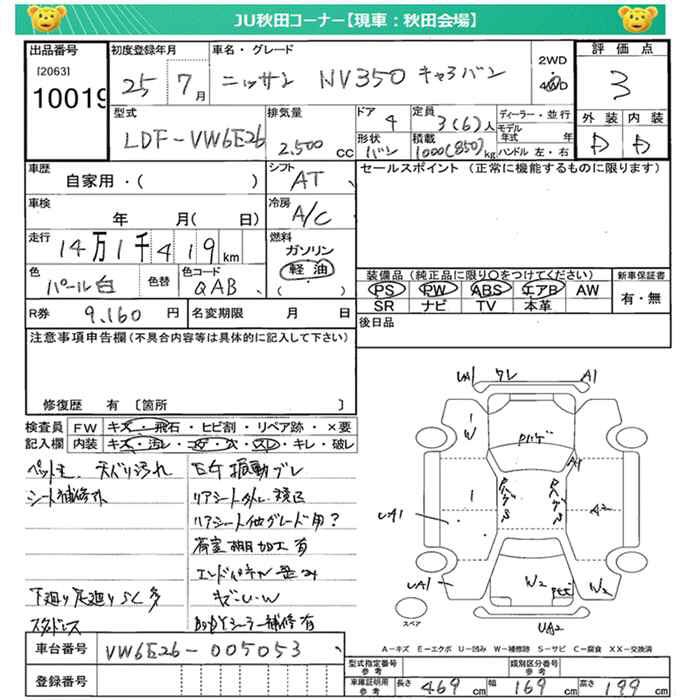 JU秋田コーナー【現車：秋田会場】
出品番号 初度登録年月 車名・グレード 2WD 4WD 評価点
[2063]
10019 25 7月 ニッサン NV350 キャラバン 3
型式 排気量 ドア 4 定員 3(6)人 ディーラー・並行 外装 内装
LDF-VW6E26 2,500cc 形状 バン 積載 1000(850)kg モデル年式 年 ハンドル 左・右 D D
車歴 シフト セールスポイント（正常に機能するものに限ります）
自家用・( ) AT
車検 冷房
年 月( 日) A/C
走行 燃料
14万1千419km ガソリン
軽油
( )
色 色替 色コード 装備品（純正品に限り○をつけてください） 新車保証書
パール白 QAB PS PW ABS エアB AW 有・無
SR ナビ TV 本革
R券 9,160円 名変期限 月 日 後日品
注意事項申告欄（不具合内容等は具体的に記入して下さい）
修復歴 有 〔箇所 〕
検査員 FW キズ・飛石・ヒビ割・リペア跡・×要
記入欄 内装 キズ・汚レ・コゲ・穴・スレ・キレ・破レ
天バリ汚れ
シート補修外
リアシート他グレード用？
荷室棚加工有
キズ・U・W
下廻り足廻りSC多
スタッドレス
シーラー補修有
UA1 ワレ A1
W
A1
UA1 A2
UA1 W2 W2
UA2
スペア
A－キズ E－エクボ U－凹み W－補修跡 S－サビ C－腐食 XX－交換済
車台番号 VW6E26-005053
登録番号
型式指定番号 参考 類別区分番号 参考
車庫証明用 参考 長さ 469cm 幅 169cm 高さ 199cm